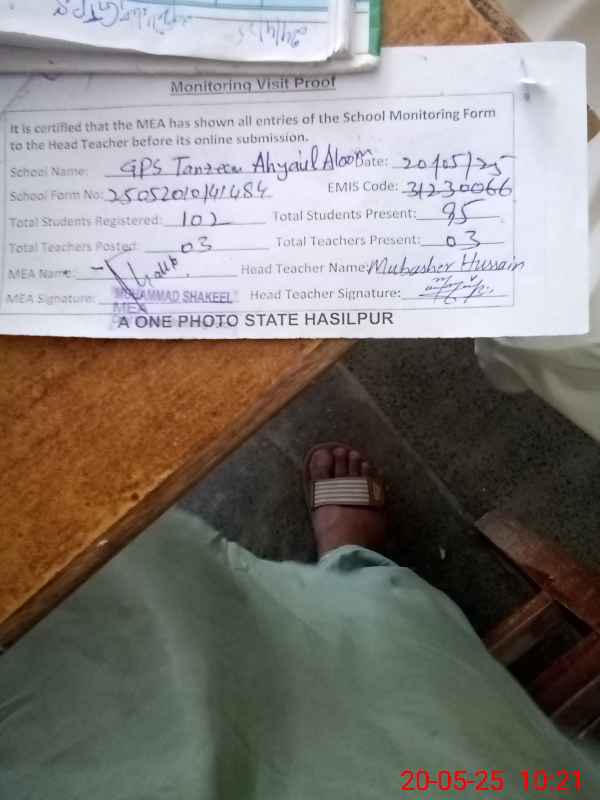 Monitoring Visit Proof
It is certified that the MEA has shown all entries of the School Monitoring Form
to the Head Teacher before its online submission.
School Name: GPS Tanzeem Ahyaul Aloom Date: 20/05/25
School Form No: 25052010141484 EMIS Code: 31230066
Total Students Registered: 102 Total Students Present: 95
Total Teachers Posted: 03 Total Teachers Present: 03
MEA Name: Head Teacher Name: Mubasher Hussain
MEA Signature: MUHAMMAD SHAKEEL Head Teacher Signature:
MEA
A ONE PHOTO STATE HASILPUR
20-05-25 10:21